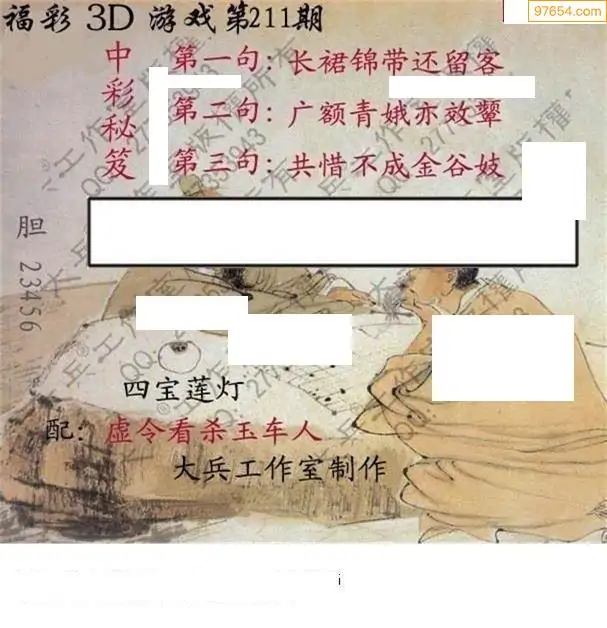 福彩 3D 游戏第211期
97654.com
中彩秘笈
第一句：长裙锦带还留客
第二句：广额青娥亦效颦
第三句：共惜不成金谷妓
胆 23456
四宝莲灯
配：虚令看杀玉车人
大兵工作室制作
i